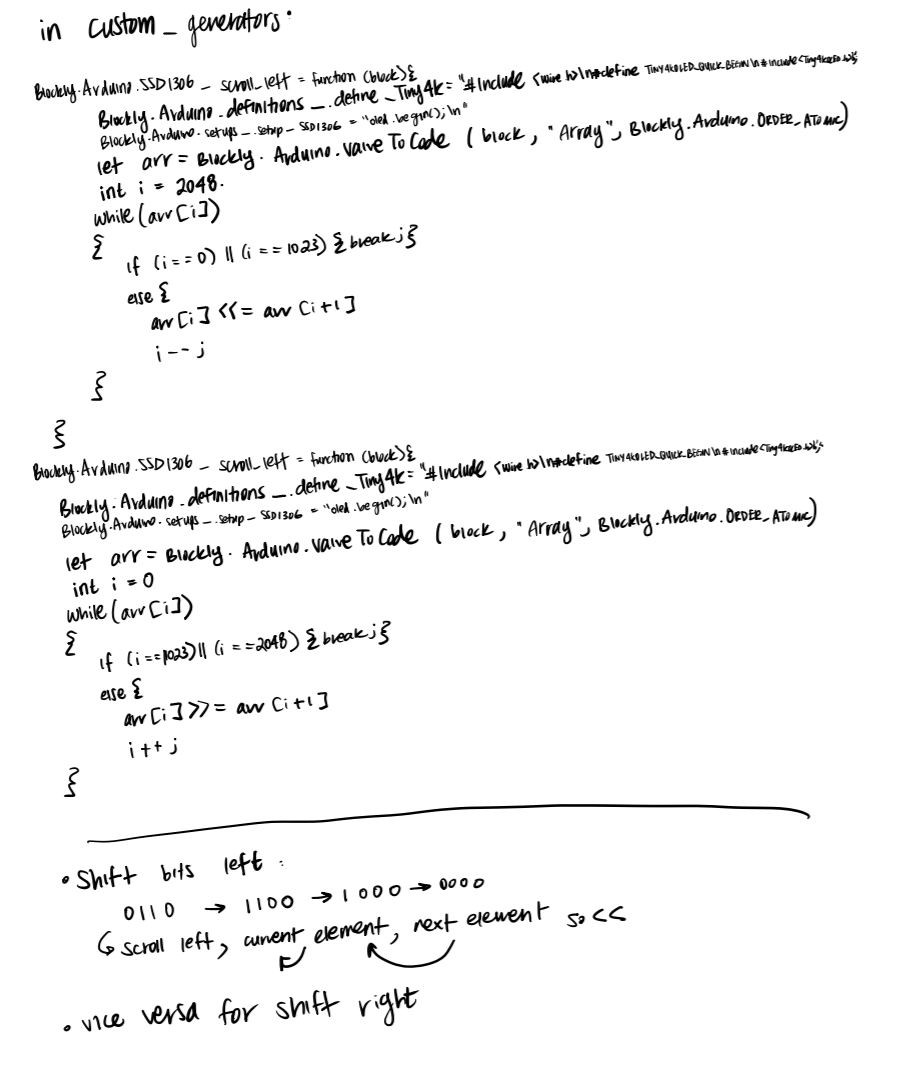 in custom_generators:
Blockly.Arduino.SSD1306_scroll_left = function (block){
Blockly.Arduino.definitions_.define_Tiny4k = "#Include <wire.h>\n#define TINY4KOLED_QUICK_BEGIN \n #include <Tiny4kOLED.h>";
Blockly.Arduino.setups_.setup_SSD1306 = "oled.begin();\n"
let arr = Blockly.Arduino.valueToCode (block, "Array", Blockly.Arduino.ORDER_ATOMIC)
int i = 2048.
while (arr[i])
{
if (i==0) || (i==1023) {break;}
else {
arr[i] <<= arr[i+1]
i--;
}
}
Blockly.Arduino.SSD1306_scroll_left = function (block){
Blockly.Arduino.definitions_.define_Tiny4k = "#Include <wire.h>\n#define TINY4KOLED_QUICK_BEGIN \n #include <Tiny4kOLED.h>";
Blockly.Arduino.setups_.setup_SSD1306 = "oled.begin();\n"
let arr = Blockly.Arduino.valueToCode (block, "Array", Blockly.Arduino.ORDER_ATOMIC)
int i = 0
while (arr[i])
{
if (i==1023) || (i==2048) {break;}
else {
arr[i] >>= arr[i+1]
i++;
}
• Shift bits left :
0110 → 1100 → 1000 → 0000
↳ scroll left, current element, next element so <<
• vice versa for shift right